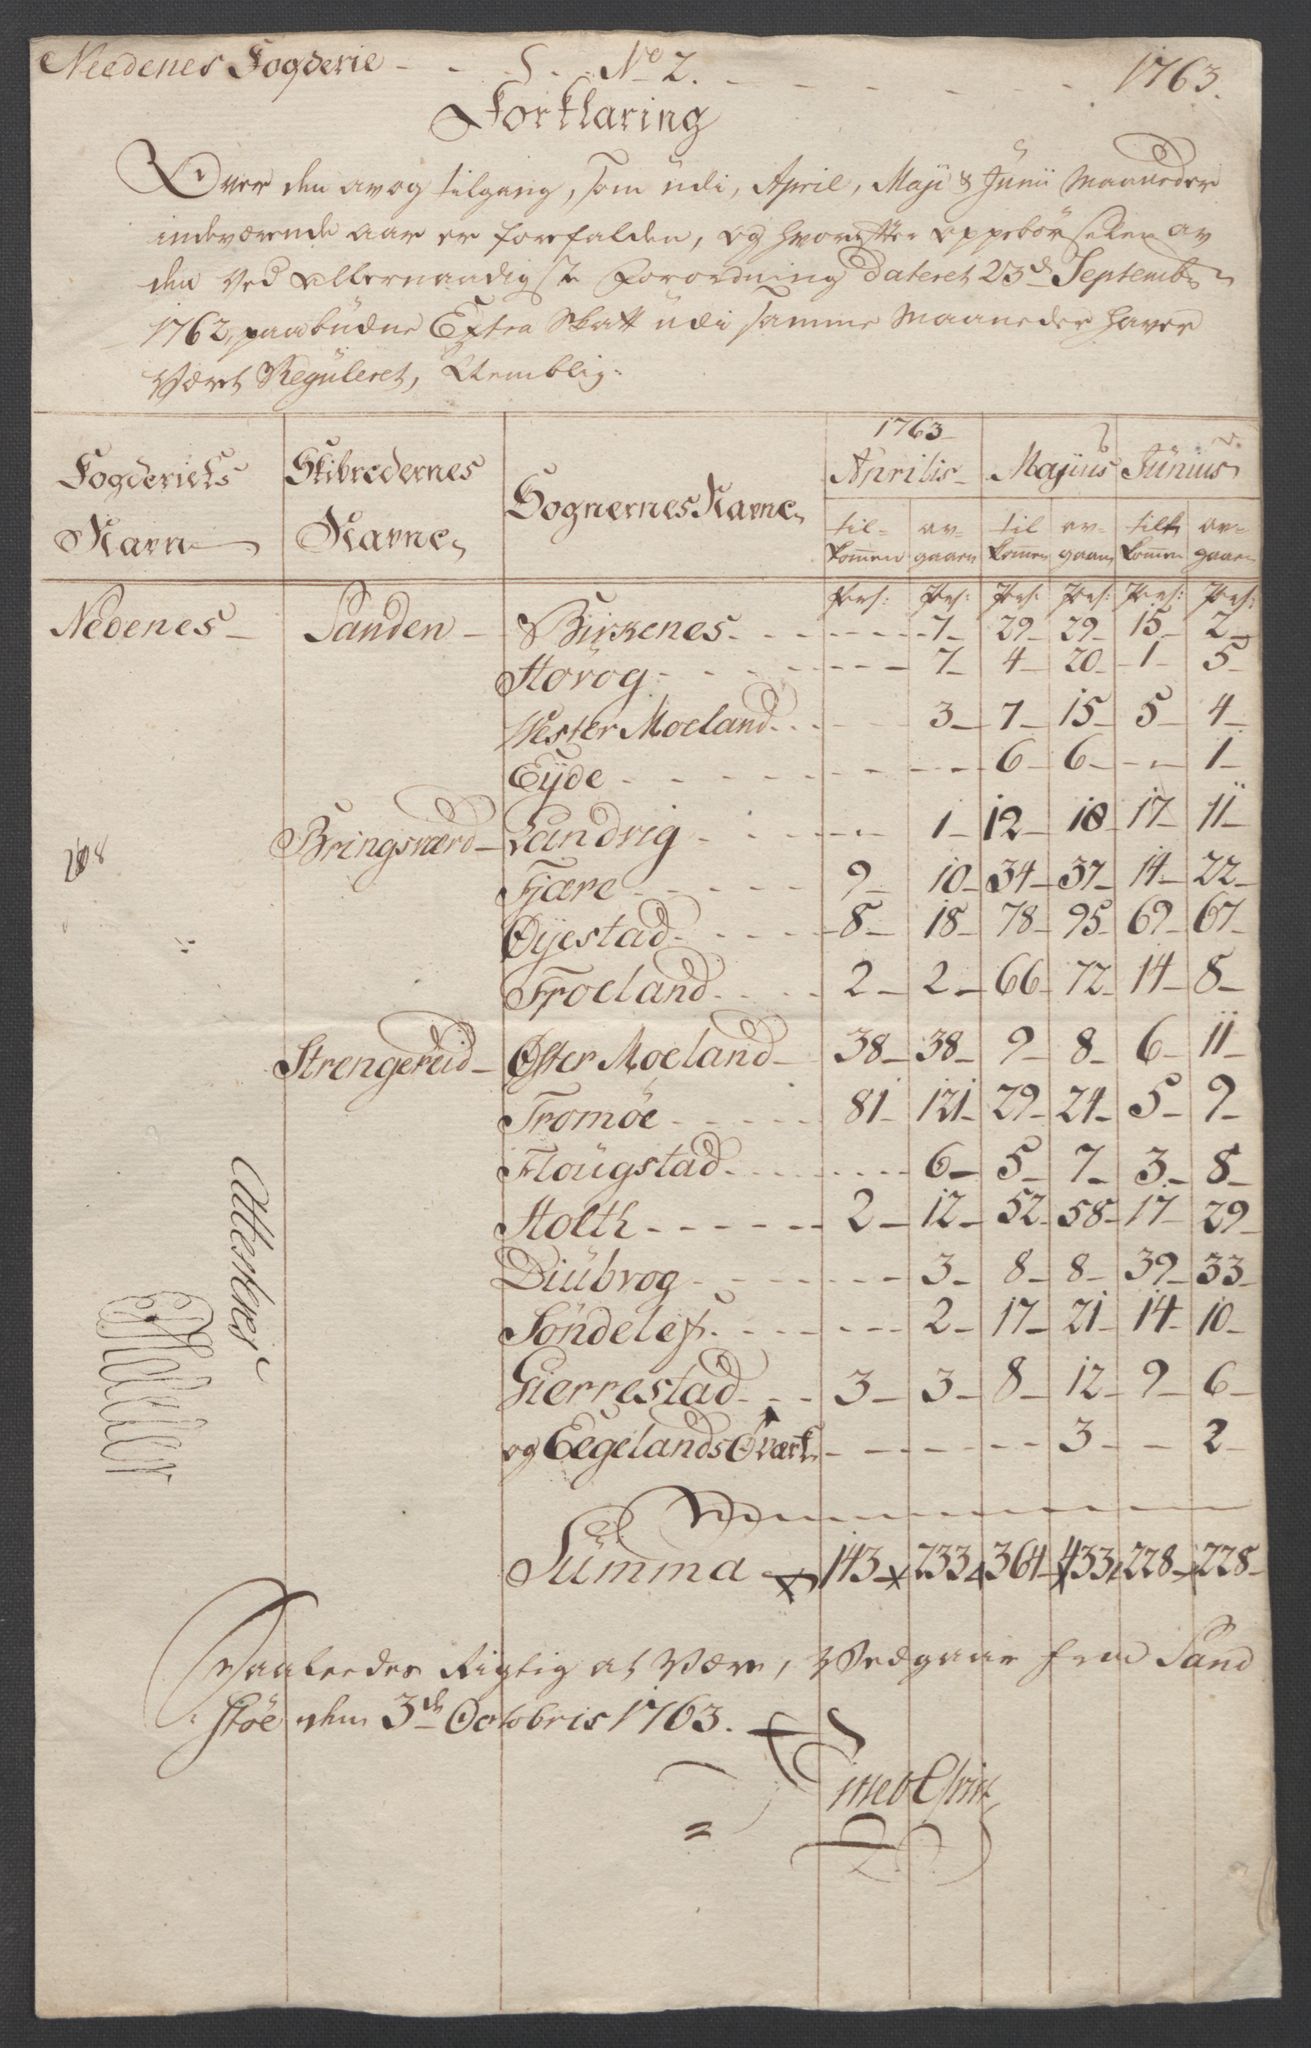 Needenes Fogderie - - S - - No 2. - - - - - 1763.
Forklaring
Over den av og tilgang, som udi, April, Maji & Junii Maaneder
indeværende aar er forefalden, og hvorefter oppebörselen av
den ved allernaadigste Forordning dateret 23de Septemb:
1762, paabudne Extra Skatt udi samme Maaneder haver
været Reguleret, Nemblig:
1763
Fogderiets Navn | Skibredernes Navne | Sognernes Navne | Aprilis | Majius | Junius
til- kommen | av- gaaen | til kommen | av- gaaen | till kommen | av- gaaen
Pers: | Pers: | Pers: | Pers: | Pers: | Pers:
Nedenes - | Sanden - | Birkenes - - - | - - - | 7 | 29 | 29 | 15 | 2
Høvog - - - | - - - | 7 | 4 | 20 | 1 | 5
Wester Moeland - - | - - | 3 | 7 | 15 | 5 | 4
Eyde - - - | - - | - - | 6 | 6 | - - | 1
Bringsværd - | Landvig - - | - - | 1 | 12 | 18 | 17 | 11
Fjære - - - | 9 | 10 | 34 | 37 | 14 | 22
Øyestad - - - | 8 | 18 | 78 | 95 | 69 | 67
Froeland - - | 2 | 2 | 66 | 72 | 14 | 8
Strengereid - | Øster Moeland - | 38 | 38 | 9 | 8 | 6 | 11
Tromöe - - - | 81 | 121 | 29 | 24 | 5 | 9
Flougstad - - - | - - | 6 | 5 | 7 | 3 | 8
Holth - - - | 2 | 12 | 52 | 58 | 17 | 29
Diübvog - - - | - - | 3 | 8 | 8 | 39 | 33
Söndelef - - - | - - | 2 | 17 | 21 | 14 | 10
Gierrestad - - | 3 | 3 | 8 | 12 | 9 | 6
og Eegelands Værk | - - | - - | - - | 3 | - - | 2
Summa | 143 | 233 | 364 | 433 | 228 | 228
Saaleedes Rigtig at være, Vedgaar fra Sand
støe den 3de Octobris 1763.
Atterteres